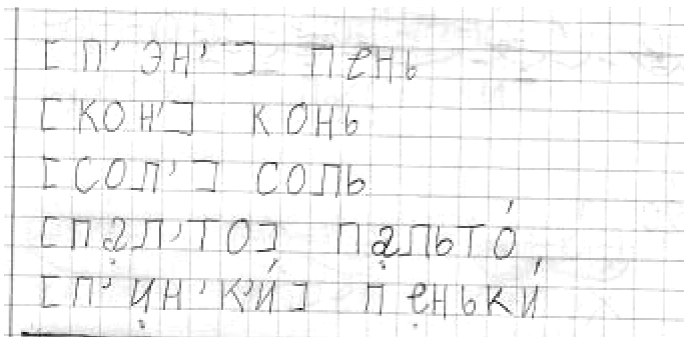 [П'ЭН'] ПЕНЬ
[КОН'] КОНЬ
[СОЛ'] СОЛЬ
[ПАЛ'ТО] ПАЛЬТО́,
[П'ИН'К'И́] ПЕНЬКИ́